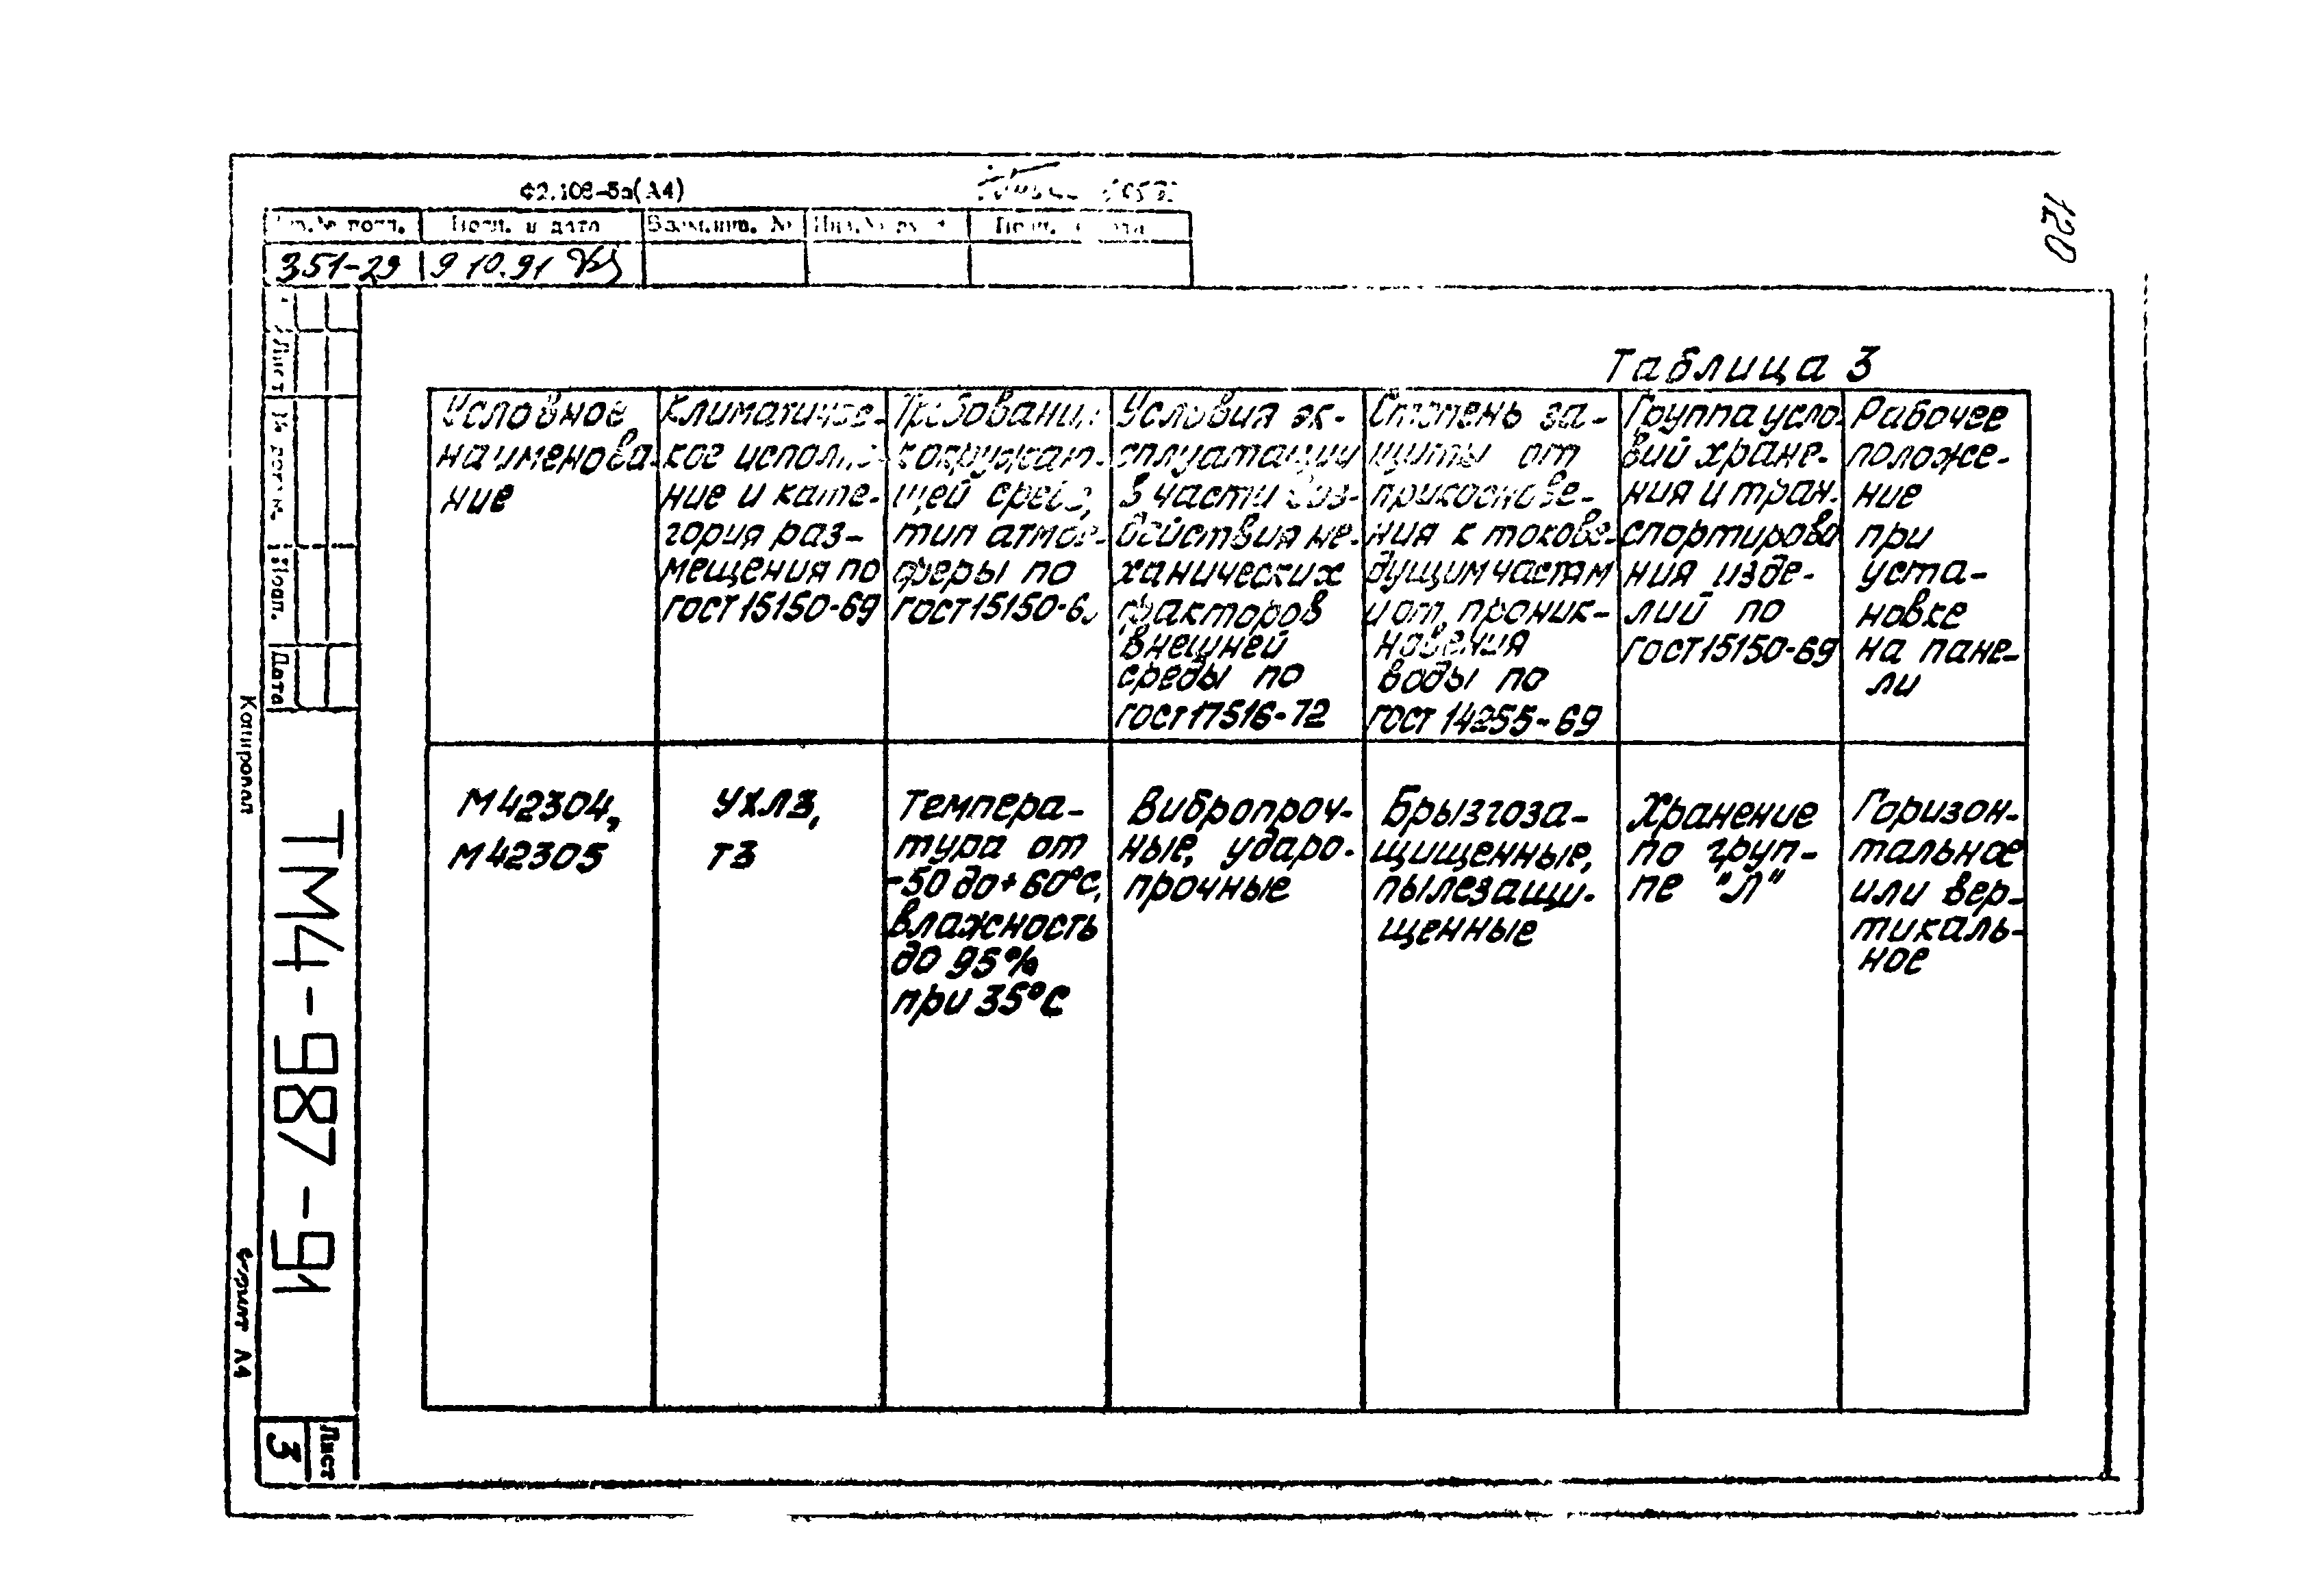 Ф2.108-5а(А4)
120
Подп. и дата Взам.инв. №
351-29 9 10.91
Таблица 3
Условное
наименова-
ние
Климатичес-
кое исполне-
ние и кате-
гория раз-
мещения по
ГОСТ 15150-69
Требования
к окружаю-
щей среде,
тип атмос-
феры по
ГОСТ 15150-69
Условия эк-
сплуатации
в части воз-
действия ме-
ханических
факторов
внешней
среды по
ГОСТ 17516-72
Степень за-
щиты от
прикоснове-
ния к токове-
дущим частям
и от проник-
новения
воды по
ГОСТ 14255-69
Группа усло-
вий хране-
ния и тран-
спортирова
ния изде-
лий по
ГОСТ 15150-69
Рабочее
положе-
ние
при
уста-
новке
на пане-
ли
М42304,
М42305
УХЛ3,
Т3
Темпера-
тура от
-50 до +60°С,
влажность
до 95%
при 35°С
Вибропроч-
ные, ударо-
прочные
Брызгоза-
щищенные,
пылезащи-
щенные
Хранение
по груп-
пе "Л"
Горизон-
тальное
или вер-
тикаль-
ное
Лист
Подп.
Дата
ТМ4-987-91
Лист
3
Копировал
Формат А4